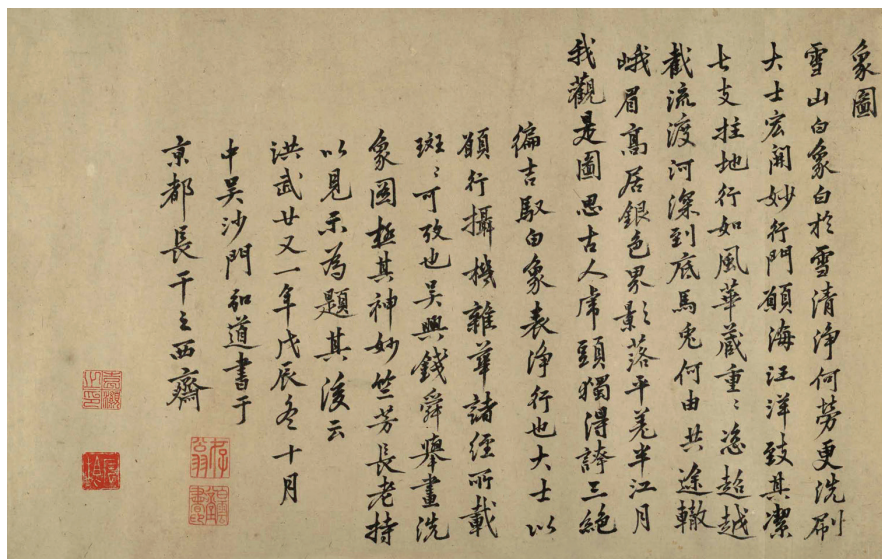 象圖
雪山白象白於雪清淨何勞更洗刷
大士宏開妙行門願海汪洋致其潔
七支拄地行如風華藏重〻恣超越
截流渡河深到底馬兎何由共途轍
峨眉高居銀色界影落平羌半江月
我觀是圖思古人虎頭獨得誇三絕
徧吉馭白象表淨行也大士以
願行攝機雜華諸經所載
斑〻可攷也吳興錢舜舉畫洗
象圖極其神妙竺芳長老持
以見示為題其後云
洪武廿又一年戊辰冬十月
中吳沙門弘道書于
京都長干之西齋